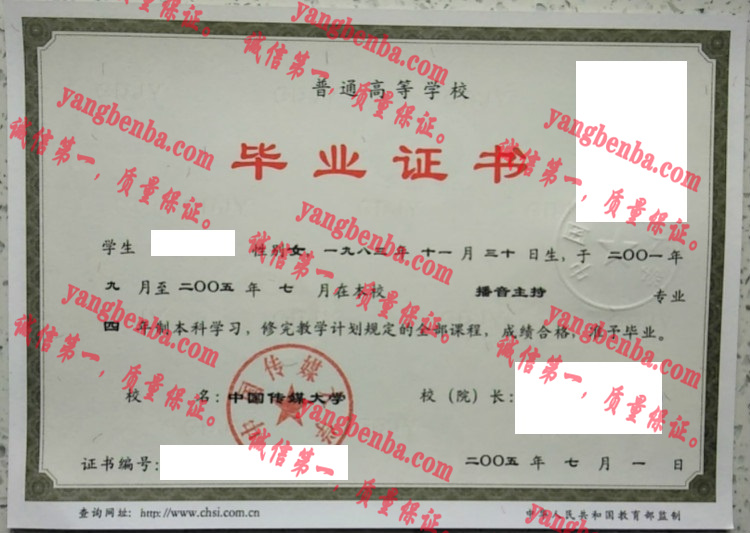 普通高等学校
毕业证书
学生 性别女，一九八三年 十一月 三十日生，于 二〇〇一年
九 月至 二〇〇五 年 七 月在本校 播音主持 专业
四 年制本科学习，修完教学计划规定的全部课程，成绩合格，准予毕业。
校 名：中国传媒大学 校（院）长：
证书编号： 二〇〇五 年 七 月 一 日
查询网址：http://www.chsi.com.cn 中华人民共和国教育部监制
中国传媒大学
yangbenba.com
诚信第一，质量保证。
yangbenba.com
诚信第一，质量保证。
yangbenba.com
诚信第一，质量保证。
yangbenba.com
诚信第一，质量保证。
yangbenba.com
诚信第一，质量保证。
yangbenba.com
诚信第一，质量保证。
yangbenba.com
诚信第一，质量保证。
yangbenba.com
诚信第一，质量保证。
yangbenba.com
诚信第一，质量保证。